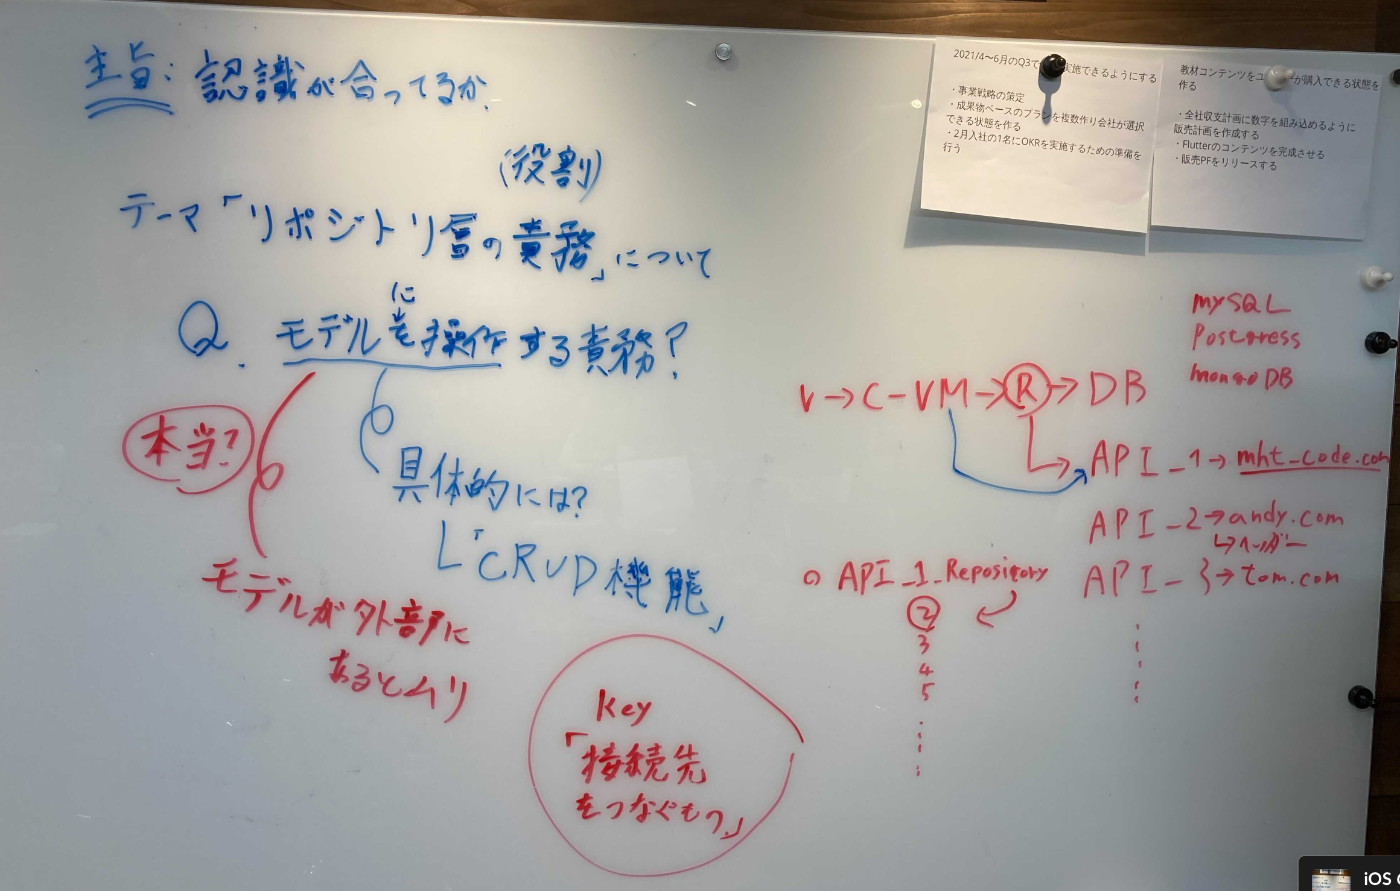 主旨: 認識が合ってるか.
(役割)
テーマ「リポジトリ層の責務」について
に
Q. モデルを操作する責務?
本当?
具体的には?
「CRUD機能」
モデルが外部に
あるとムリ
Key
「接続先
をつなぐもの」
2021/4〜6月のQ3で実施できるようにする
・事業戦略の策定
・成果物ベースのプランを複数作り会社が選択
できる状態を作る
・2月入社の1名にOKRを実施するための準備を
行う
教材コンテンツをユが購入できる状態を
作る
・全社収支計画に数字を組み込めるように
販売計画を作成する
・Flutterのコンテンツを完成させる
・販売PFをリリースする
MySQL
Postgress
mongoDB
V→C-VM→R→DB
API_1→mht_code.com
API_2→andy.com
↳ヘッダー
API_3→tom.com
○ API_1_Repository
2
3
4
5
iOS